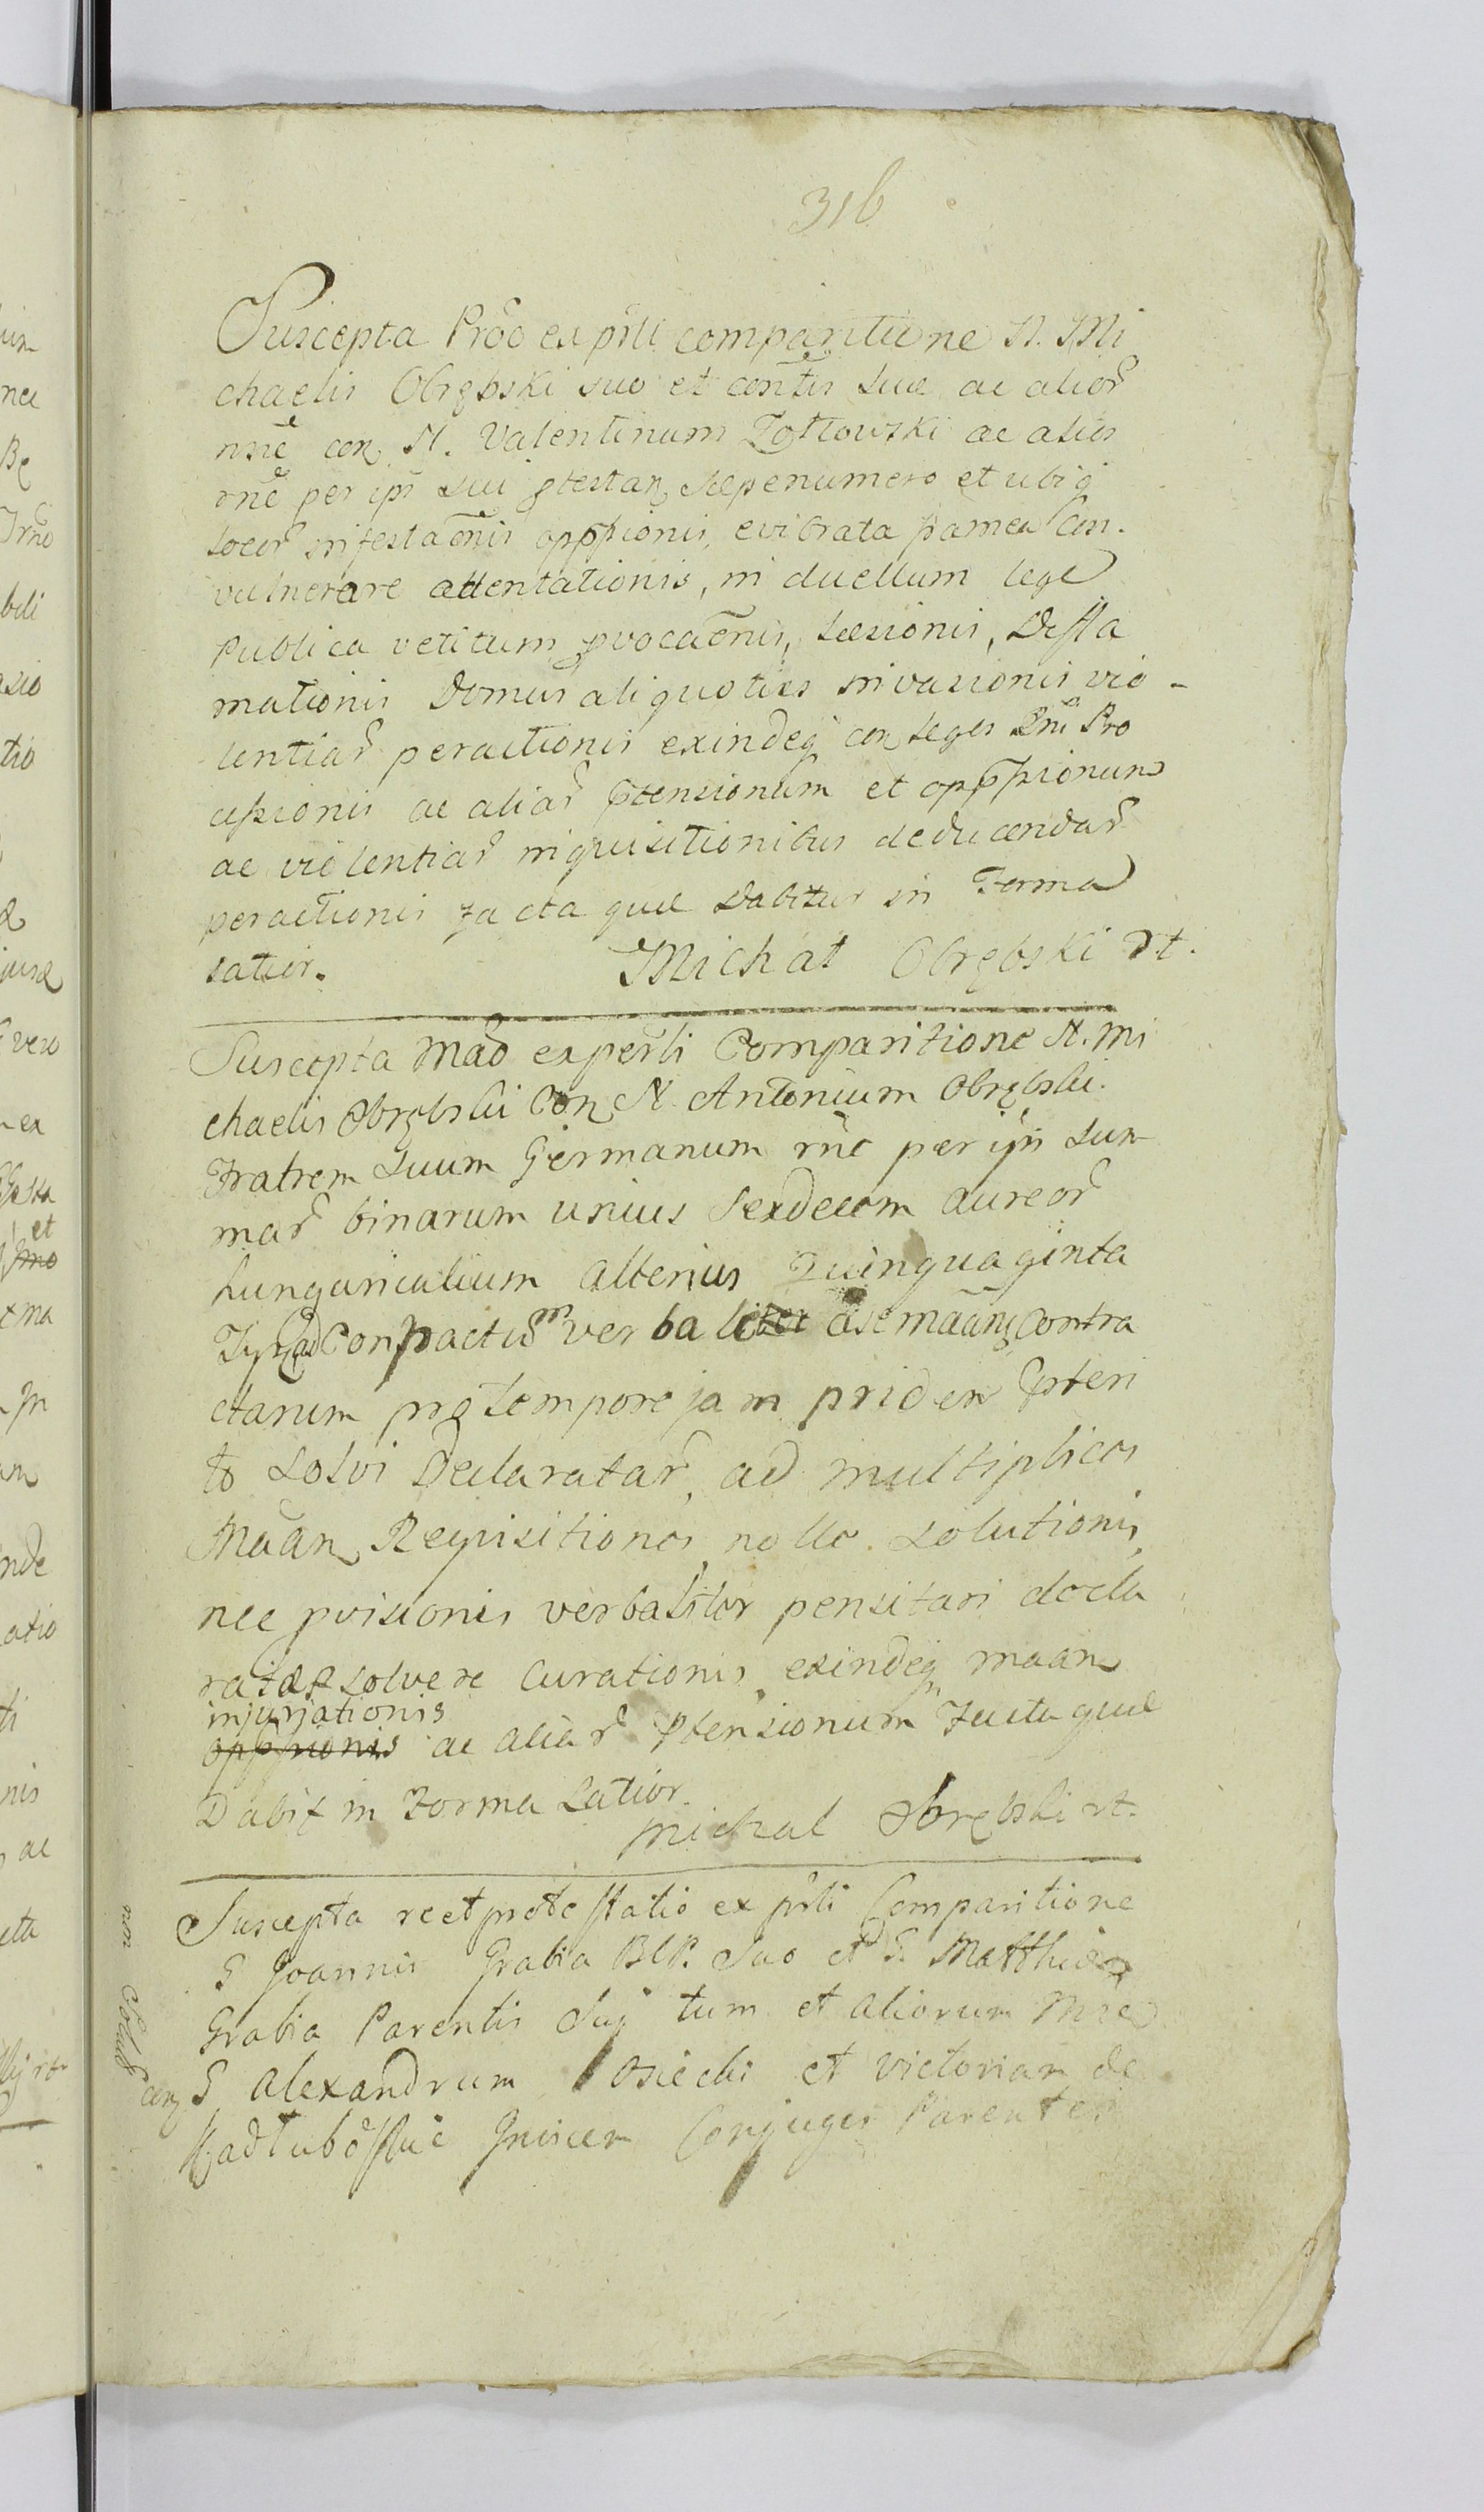 316
Suscepta Prõõ ex p̃nti comparitione N. Mi
chaelis Obrębski suo et cont̃is suæ ac alior̃
nñe con N. Valentinum Zołtowski ac alios
rñe per ip̃ sui ptestan sæpenumero et ubiq
locor̃ infestãonis opp̃pionis, evibrata framea Con.
vulnerare attentationis, in duellum lege
publica vetitum pvocãonis, læsionis, Diffa
mationis Domus aliquoties invasionis vio-
lentiar̃ peractionis exindeq con leges Pñi Pro
cessionis ac aliar̃ ptensionum et opp̃ssionum
ac violentiar̃ inquisitionibus deducendar̃
peractionis facta quæ dabitur in Forma
latior.
Michał Obrębski rt.
Suscepta Mãõ ex p̃nti Comparitione N. Mi
chaelis Obrębski Con N. Antonium Obrębski
Fratrem Suum Germanum rñe per ip̃ Sum
mar̃ binarum unius Sexdecem aureor̃
hungaricalium alterius Quinquaginta
Conpactum verba a se mãan contra
ctarum pro tempore jam pridem pteri
to Solvi Declaratar̃, ad multiplices
Mãan Requisitiones nolle solutionis,
nec pvisionis verbaliter pensitari decla
ratæ solvere Curationis, exindeq maan
injuriationis
opp̃pionis ac aliar̃ Ptensionum Facta quæ
Dabit in Forma Latior.
Michal Obrębski rt.
Suscepta reet protestatio ex p̃nti Comparitione
G Joannis Grabia BCP. Suo et G. Matthiæ
Grabia Parentis Sui tum et aliorum nñe
con G Alexandrum Osiecki et Victoriam de
Kadłubo̊skie Invicem Conjuges Parentes